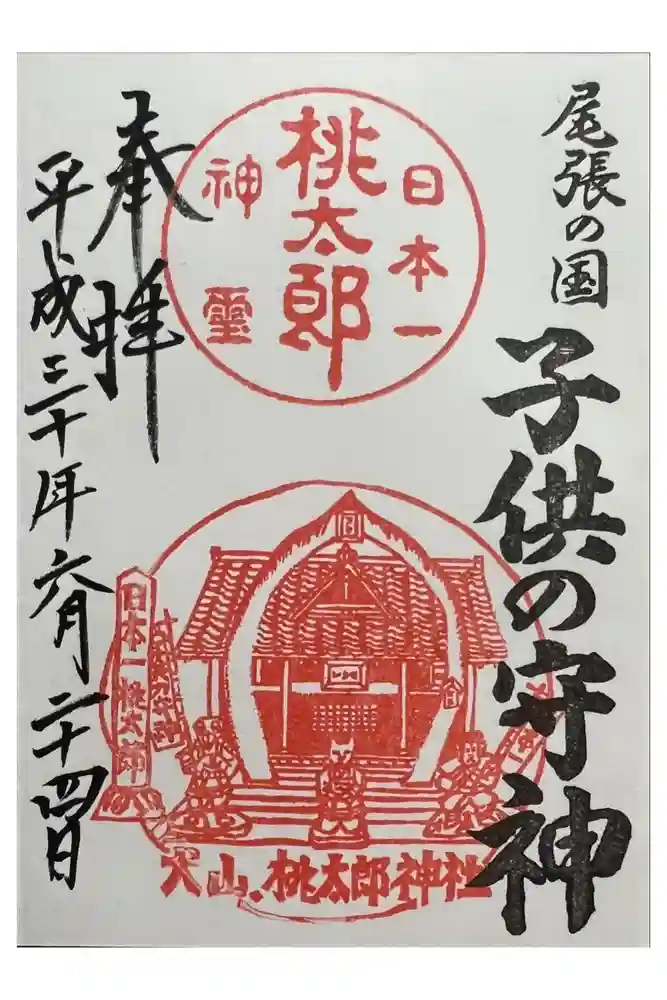 尾張の国
子供の守神
日本一
桃太郎
神靈
奉拝
平成三十年六月二十四日
日本一桃太郎
犬山、桃太郎神社